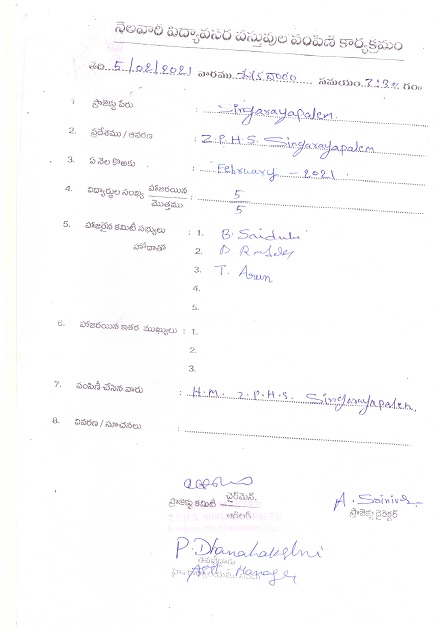 నెలవారీ విద్యావసర వస్తువుల పంపిణీ కార్యక్రమం
తేది 5/02/2021 వారము సమయం
1. ప్రాజెక్టు పేరు : Singarayapalem.
2. ప్రదేశము / ఆవరణ : Z.P.H.S. Singarayapalem
3. ఏ నెల కొఱకు : February - 2021
4. విద్యార్థుల సంఖ్య హాజరయిన / మొత్తము : 5 / 5
5. హాజరైన కమిటీ సభ్యులు : 1. B. Saidulu
హోదాతో 2.
3. T. Arun
4.
5.
6. హాజరయిన ఇతర ముఖ్యులు : 1.
2.
3.
7. పంపిణీ చేసిన వారు : H.M. Z.P.H.S. Singarayapalem.
8. వివరణ / సూచనలు :
ప్రాజెక్టు కమిటీ ఛైర్మెన్.
A. Srinivas
ప్రాజెక్టు డైరెక్టర్
P. Dhanalakshmi
Manager